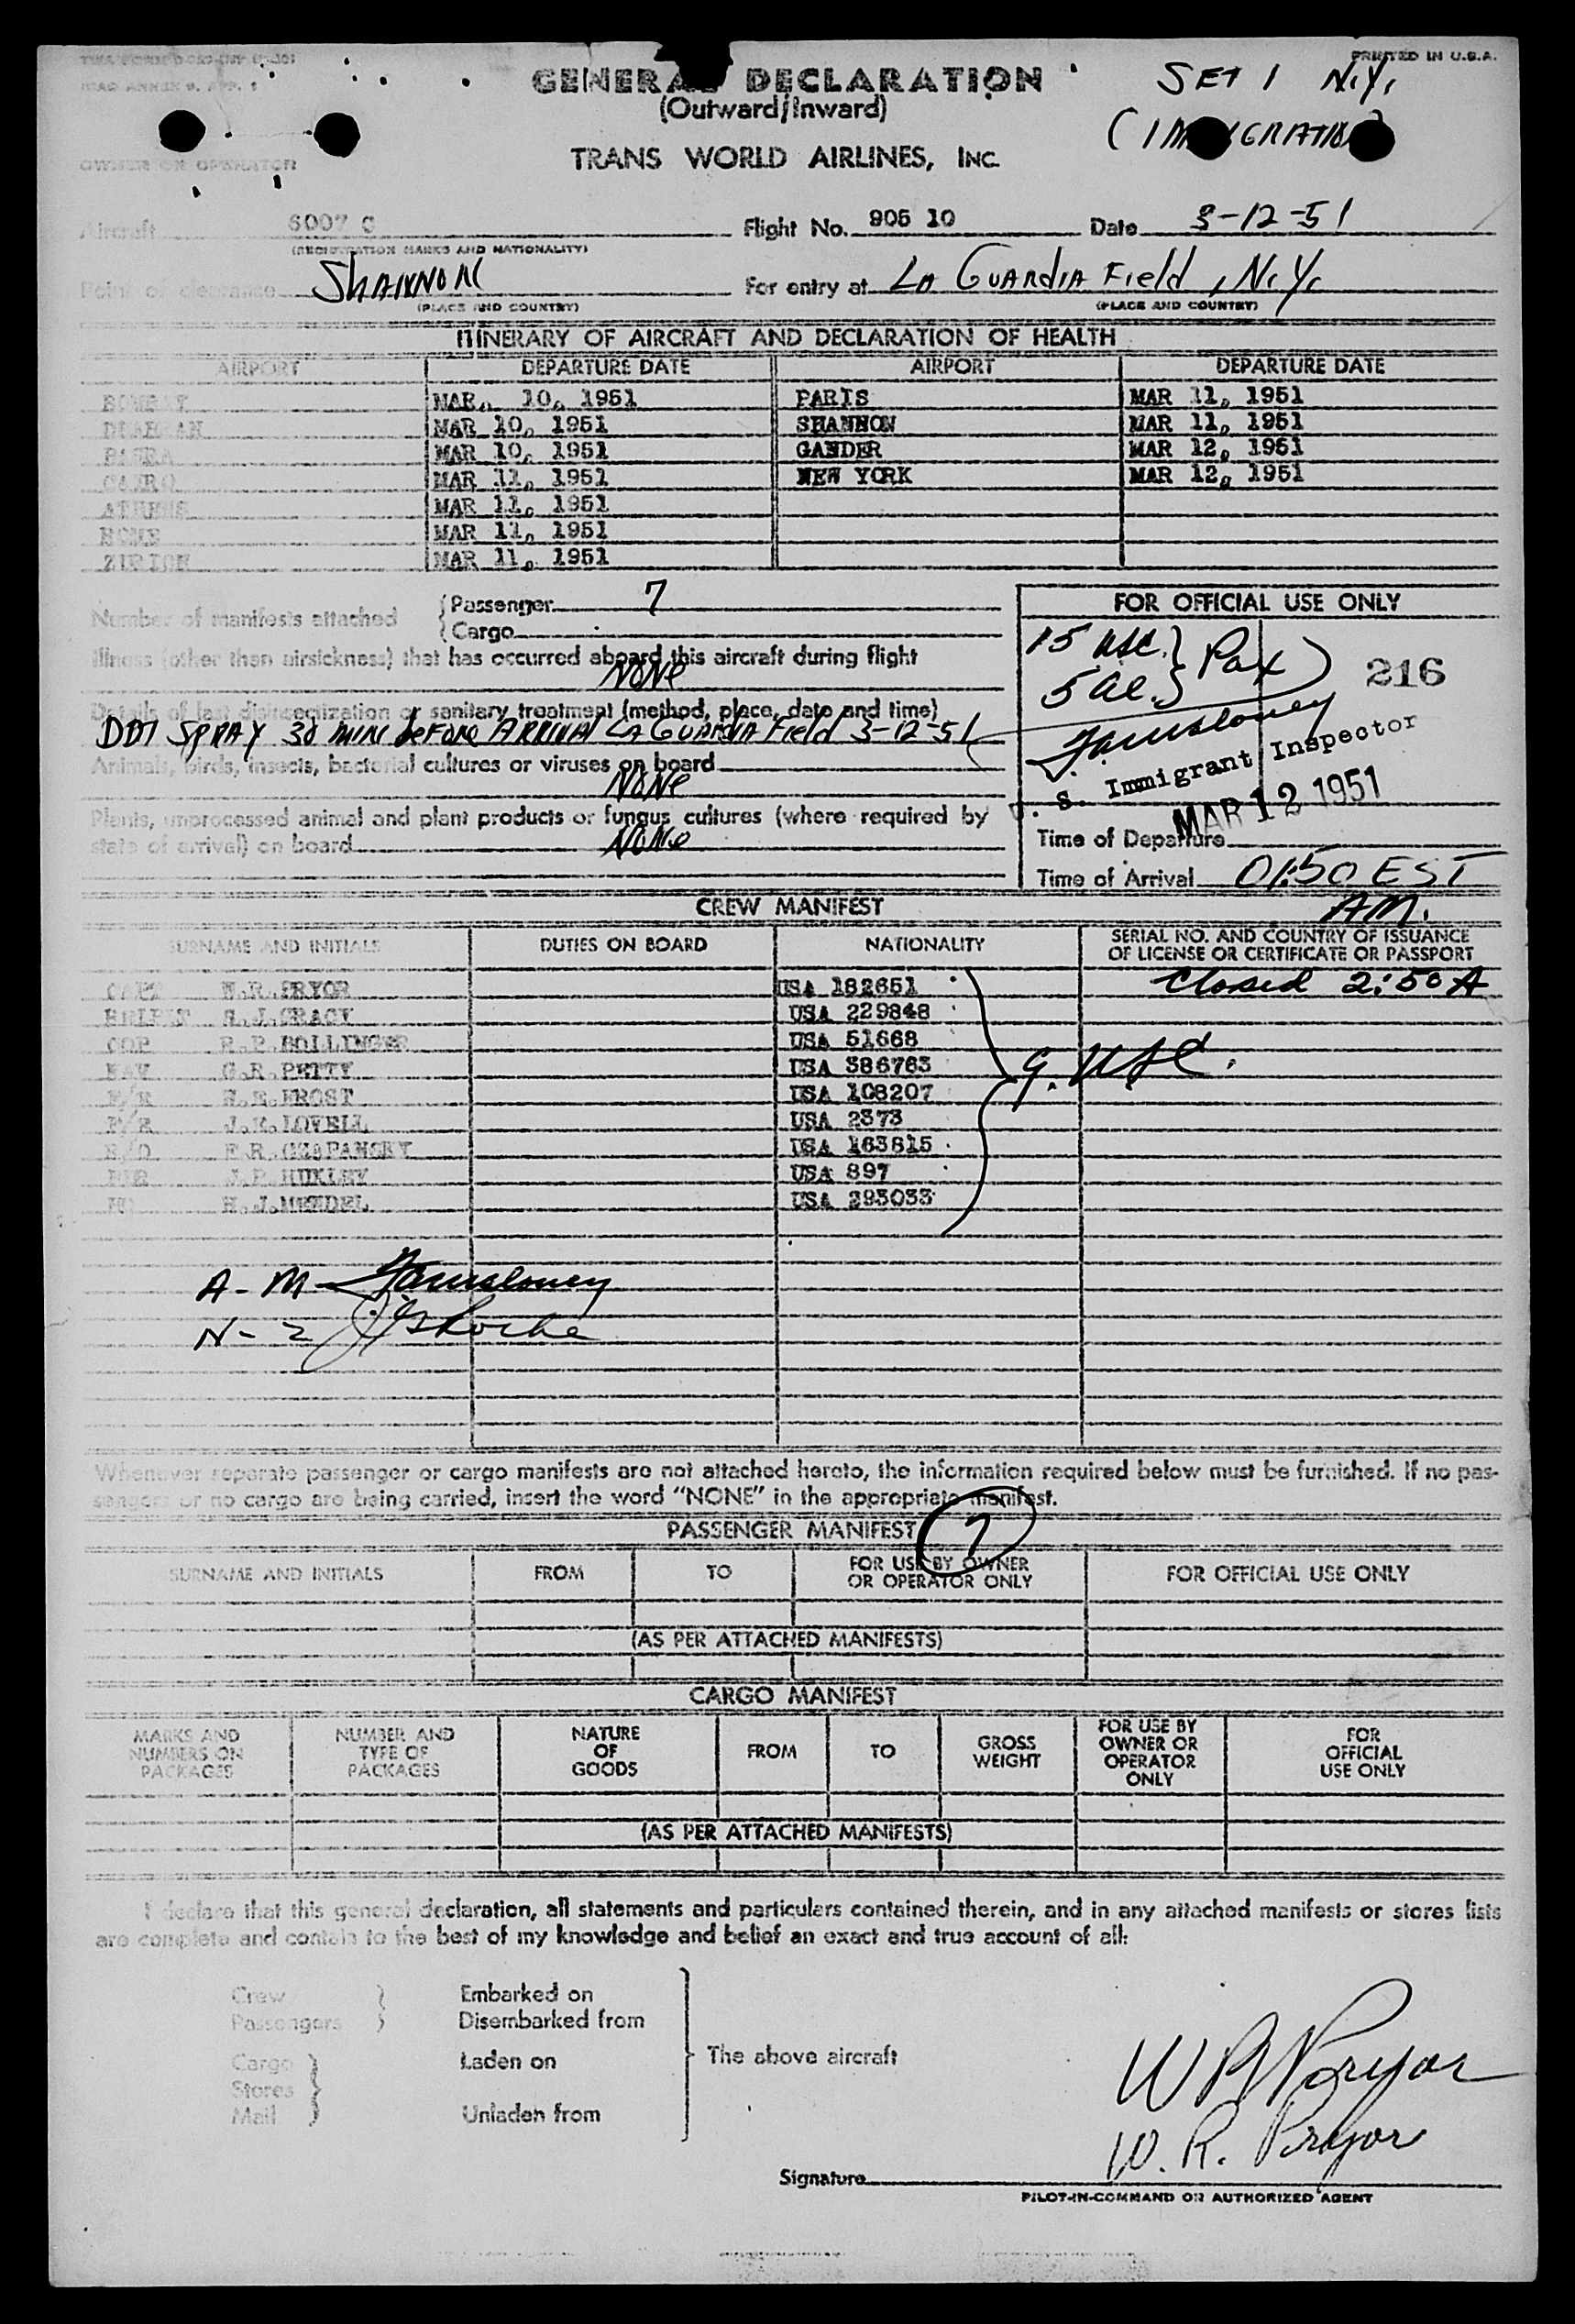 PRINTED IN U.S.A.
GENERAL DECLARATION
SET 1 N.Y.
(Outward/Inward)
(IMMIGRATION)
TRANS WORLD AIRLINES, INC.
OWNER OR OPERATOR
Aircraft 6007 C Flight No. 905 10 Date 3-12-51
(REGISTRATION MARKS AND NATIONALITY)
Point of clearance SHANNON For entry at LA GUARDIA Field, N.Y.
(PLACE AND COUNTRY) (PLACE AND COUNTRY)
ITINERARY OF AIRCRAFT AND DECLARATION OF HEALTH
AIRPORT DEPARTURE DATE AIRPORT DEPARTURE DATE
BOMBAY MAR. 10, 1951 PARIS MAR 11, 1951
DHAHRAN MAR 10, 1951 SHANNON MAR 11, 1951
BASRA MAR 10, 1951 GANDER MAR 12, 1951
CAIRO MAR 11, 1951 NEW YORK MAR 12, 1951
ATHENS MAR 11, 1951
ROME MAR 11, 1951
ZURICH MAR 11, 1951
Number of manifests attached { Passenger 7
{ Cargo
FOR OFFICIAL USE ONLY
15 USC. } Pax
5 Al. }
216
Illness (other than airsickness) that has occurred aboard this aircraft during flight
NONE
Details of last disinsectization or sanitary treatment (method, place, date and time)
DDT SPRAY 30 MIN before ARRIVAL LA GUARDIA Field 3-12-51
U. S. Immigrant Inspector
Animals, birds, insects, bacterial cultures or viruses on board
NONE
MAR 12 1951
Plants, unprocessed animal and plant products or fungus cultures (where required by
state of arrival) on board NONE
Time of Departure
Time of Arrival 01:50 EST
AM.
CREW MANIFEST
SURNAME AND INITIALS DUTIES ON BOARD NATIONALITY SERIAL NO. AND COUNTRY OF ISSUANCE
OF LICENSE OR CERTIFICATE OR PASSPORT
CAPT W.R.PRYOR USA 182651 Closed 2:50 A
H.J.GRACY USA 229848
COP R.P.BOLLINGER USA 51668
NAV G.R.PETTY USA 386763
F/E H.E.FROST USA 108207
F/E J.K.LOVELL USA 2373
R/O F.R.CZAPANSKY USA 163815
J.P.HUXLEY USA 897
H.J.MENDEL USA 293033
9. USC.
A - M -
N - 2
Whenever separate passenger or cargo manifests are not attached hereto, the information required below must be furnished. If no pas-
sengers or no cargo are being carried, insert the word "NONE" in the appropriate manifest.
PASSENGER MANIFEST 7
SURNAME AND INITIALS FROM TO FOR USE BY OWNER
OR OPERATOR ONLY FOR OFFICIAL USE ONLY
(AS PER ATTACHED MANIFESTS)
CARGO MANIFEST
MARKS AND
NUMBERS ON
PACKAGES
NUMBER AND
TYPE OF
PACKAGES
NATURE
OF
GOODS
FROM
TO
GROSS
WEIGHT
FOR USE BY
OWNER OR
OPERATOR
ONLY
FOR
OFFICIAL
USE ONLY
(AS PER ATTACHED MANIFESTS)
I declare that this general declaration, all statements and particulars contained therein, and in any attached manifests or stores lists
are complete and contain to the best of my knowledge and belief an exact and true account of all:
Crew } Embarked on
Passengers } Disembarked from
Cargo } Laden on The above aircraft
Stores }
Mail } Unladen from
W R Pryor
W. R. Pryor
Signature
PILOT-IN-COMMAND OR AUTHORIZED AGENT